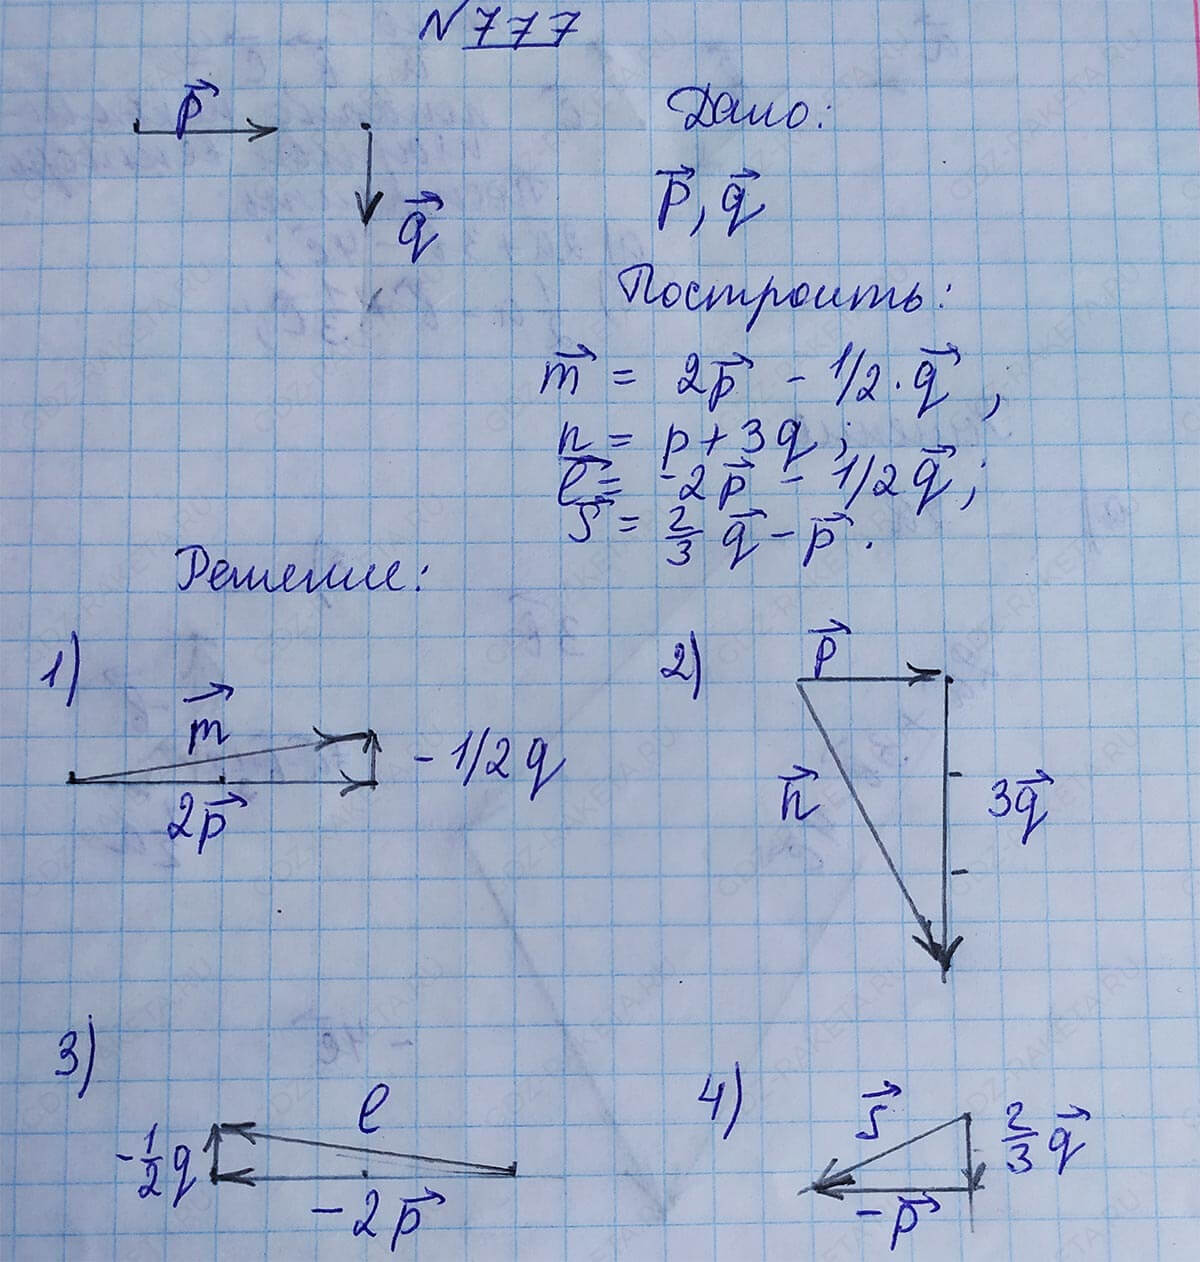 N 777
p⃗
q⃗
Дано:
p⃗, q⃗
Построить:
m⃗ = 2p⃗ - 1/2·q⃗,
n = p + 3q;
l⃗ = -2p⃗ - 1/2q⃗;
s⃗ = 2/3 q⃗ - p⃗.
Решение:
1)
m⃗
2p⃗
- 1/2q
2)
p⃗
n⃗
3q⃗
3)
l
-1/2q
-2p⃗
4)
s⃗
2/3q⃗
-p⃗
GDZ-RAKETA.RU